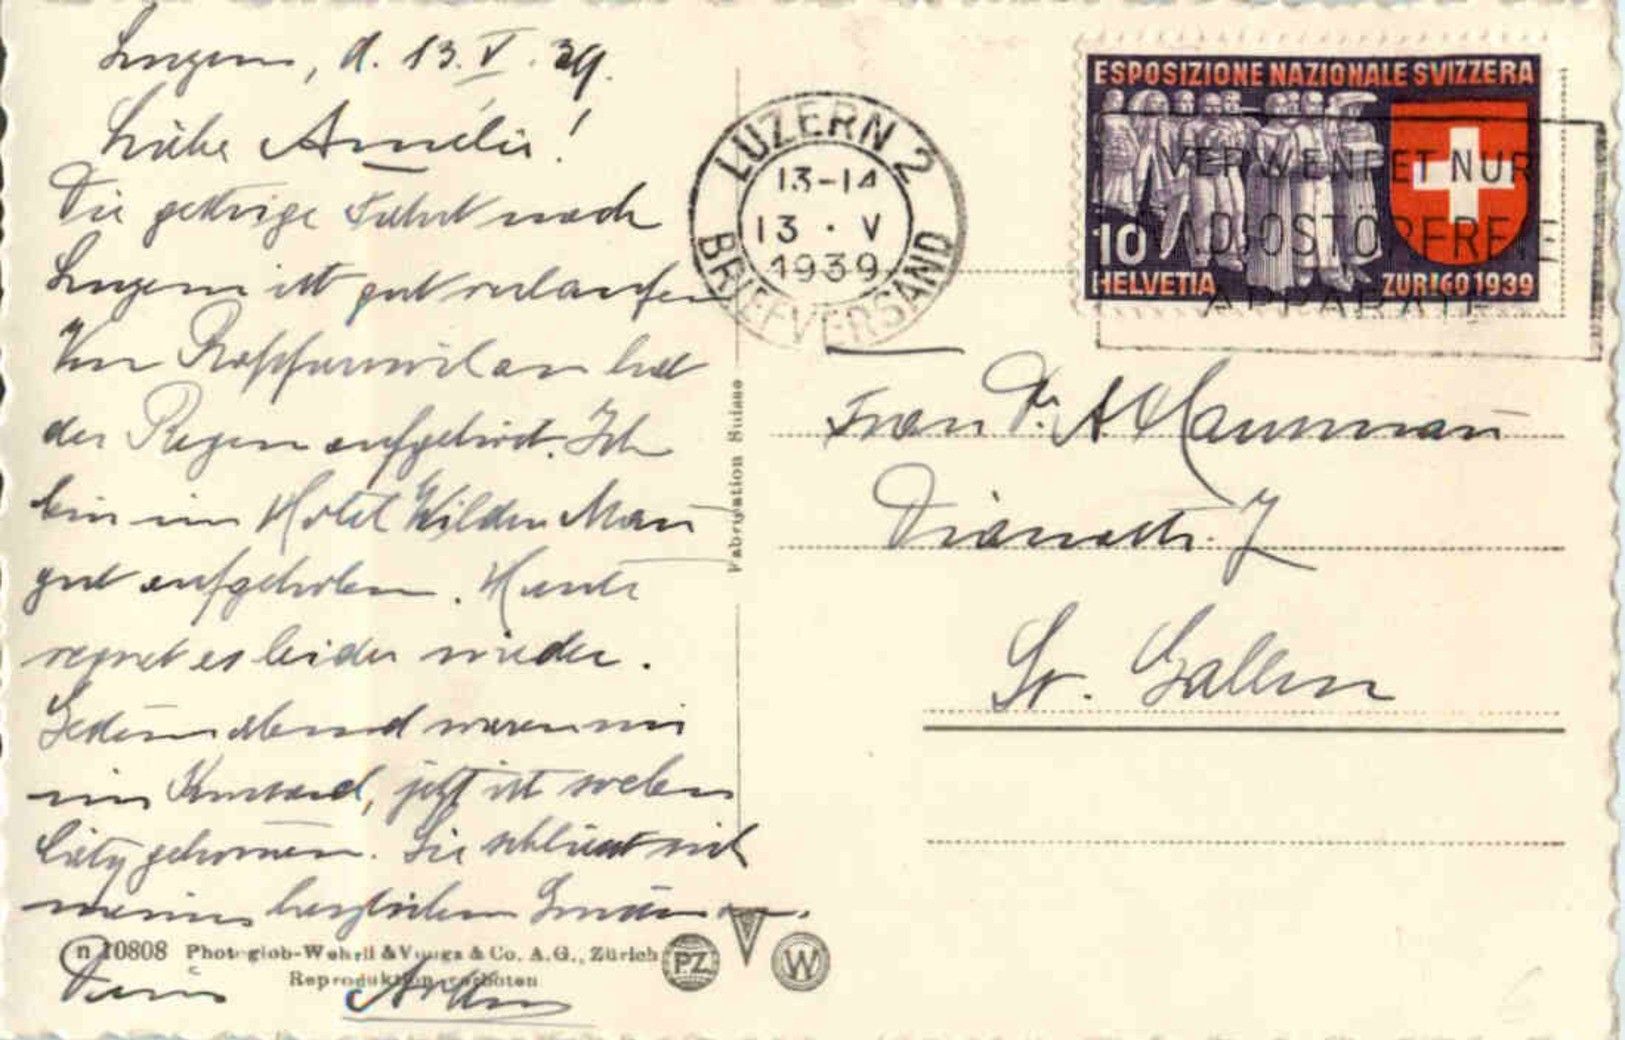 Luzern, d. 13. V. 39.
Liebe Amélie!
Die gestrige Fahrt nach
Luzern ist gut verlaufen
Von an hat
der Regen aufgehört. Ich
bin im Hotel Wilden Mann
gut aufgehoben. Heute
regnet es leider wieder.
abend waren wir
im jetzt ist soeben
gekommen. Sie schliesst sich
meinen herzlichen Grüssen an.
Dein Arthur
n 10808 Photoglob-Wehrli & Vouga & Co. A.G., Zürich
Reproduktion verboten
PZ
W
Fabrication Suisse
LUZERN 2
13-14
13 · V
1939
BRIEFVERSAND
ESPOSIZIONE NAZIONALE SVIZZERA
10
HELVETIA
ZURIGO 1939
VERWENDET NUR
RADIOSTÖRFREIE
APPARATE
Frau Dr. A. Hausmann
Dianastr. 7
St. Gallen